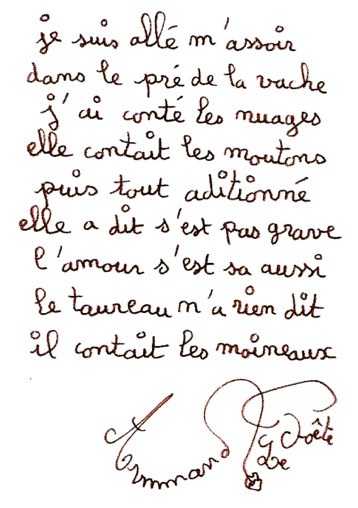 je suis allé m'assoir
dans le pré de la vache
j'ai conté les nuages
elle contait les moutons
puis tout aditionné
elle a dit s'est pas grave
l'amour s'est sa aussi
le taureau n'a rien dit
il contait les moineaux
Armand Le Poête